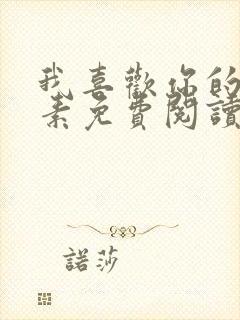 我喜歡你的
素免費閱讀
諾莎